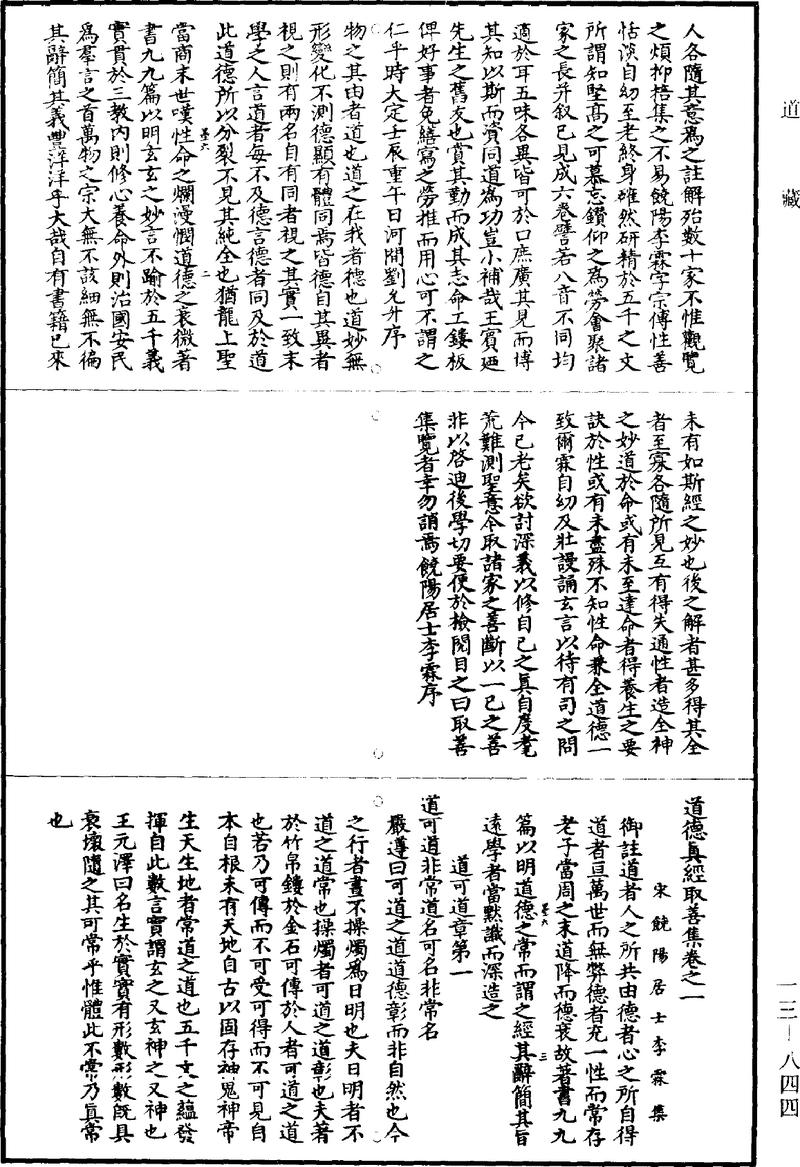 道藏
一三—八四四
人各隨其意爲之註解殆數十家不惟觀覽
之煩抑捨集之不易饒陽李霖字宗傳性善
恬淡自幼至老終身確然研精於五千之文
所謂知堅高之可慕忘鑽仰之爲勞會聚諸
家之長并叙己見成六卷譬若八音不同均
適於耳五味各異皆可於口庶廣其見而博
其知以斯而資同道爲功豈小補哉王賓廼
先生之舊友也賞其勤而成其志命工鏤板
俾好事者免繕寫之勞推而用心可不謂之
仁乎時大定壬辰重午日河間劉允升序
物之其由者道也道之在我者德也道妙無
形變化不測德顯有體同焉皆德自其異者
視之則有兩名自有同者視之其實一致末
學之人言道者每不及德言德者罔及於道
此道德所以分裂不見其純全也猶龍上聖
墨六
二
當商末世嘆性命之爛漫憫道德之衰微著
書九九篇以明玄玄之妙言不踰於五千義
實貫於三教內則修心養命外則治國安民
爲羣言之首萬物之宗大無不該細無不徧
其辭簡其義豐洋洋乎大哉自有書籍已來
未有如斯經之妙也後之解者甚多得其全
者至寡各隨所見互有得失通性者造全神
之妙道於命或有未至達命者得養生之要
訣於性或有未盡殊不知性命兼全道德一
致爾霖自幼及壯謾誦玄言以待有司之問
今已老矣欲討深義以修自己之眞自度耄
荒難測聖意今取諸家之善斷以一己之善
非以啓迪後學切要便於檢閱目之曰取善
集覽者幸勿誚焉饒陽居士李霖序
道德眞經取善集卷之一
宋饒陽居士李霖集
御註道者人之所共由德者心之所自得
道者亘萬世而無弊德者充一性而常存
老子當周之末道降而德衰故著書九九
墨六
三
篇以明道德之常而謂之經其辭簡其旨
遠學者當默識而深造之
道可道章第一
道可道非常道名可名非常名
嚴遵曰可道之道道德彰而非自然也今
之行者晝不操燭爲日明也夫日明者不
道之道常也操燭者可道之道彰也夫著
於竹帛鏤於金石可傳於人者可道之道
也若乃可傳而不可受可得而不可見自
本自根未有天地自古以固存神鬼神帝
生天生地者常道之道也五千文之蘊發
揮自此數言實謂玄之又玄神之又神也
王元澤曰名生於實實有形數形數旣具
衰壞隨之其可常乎惟體此不常乃眞常
也